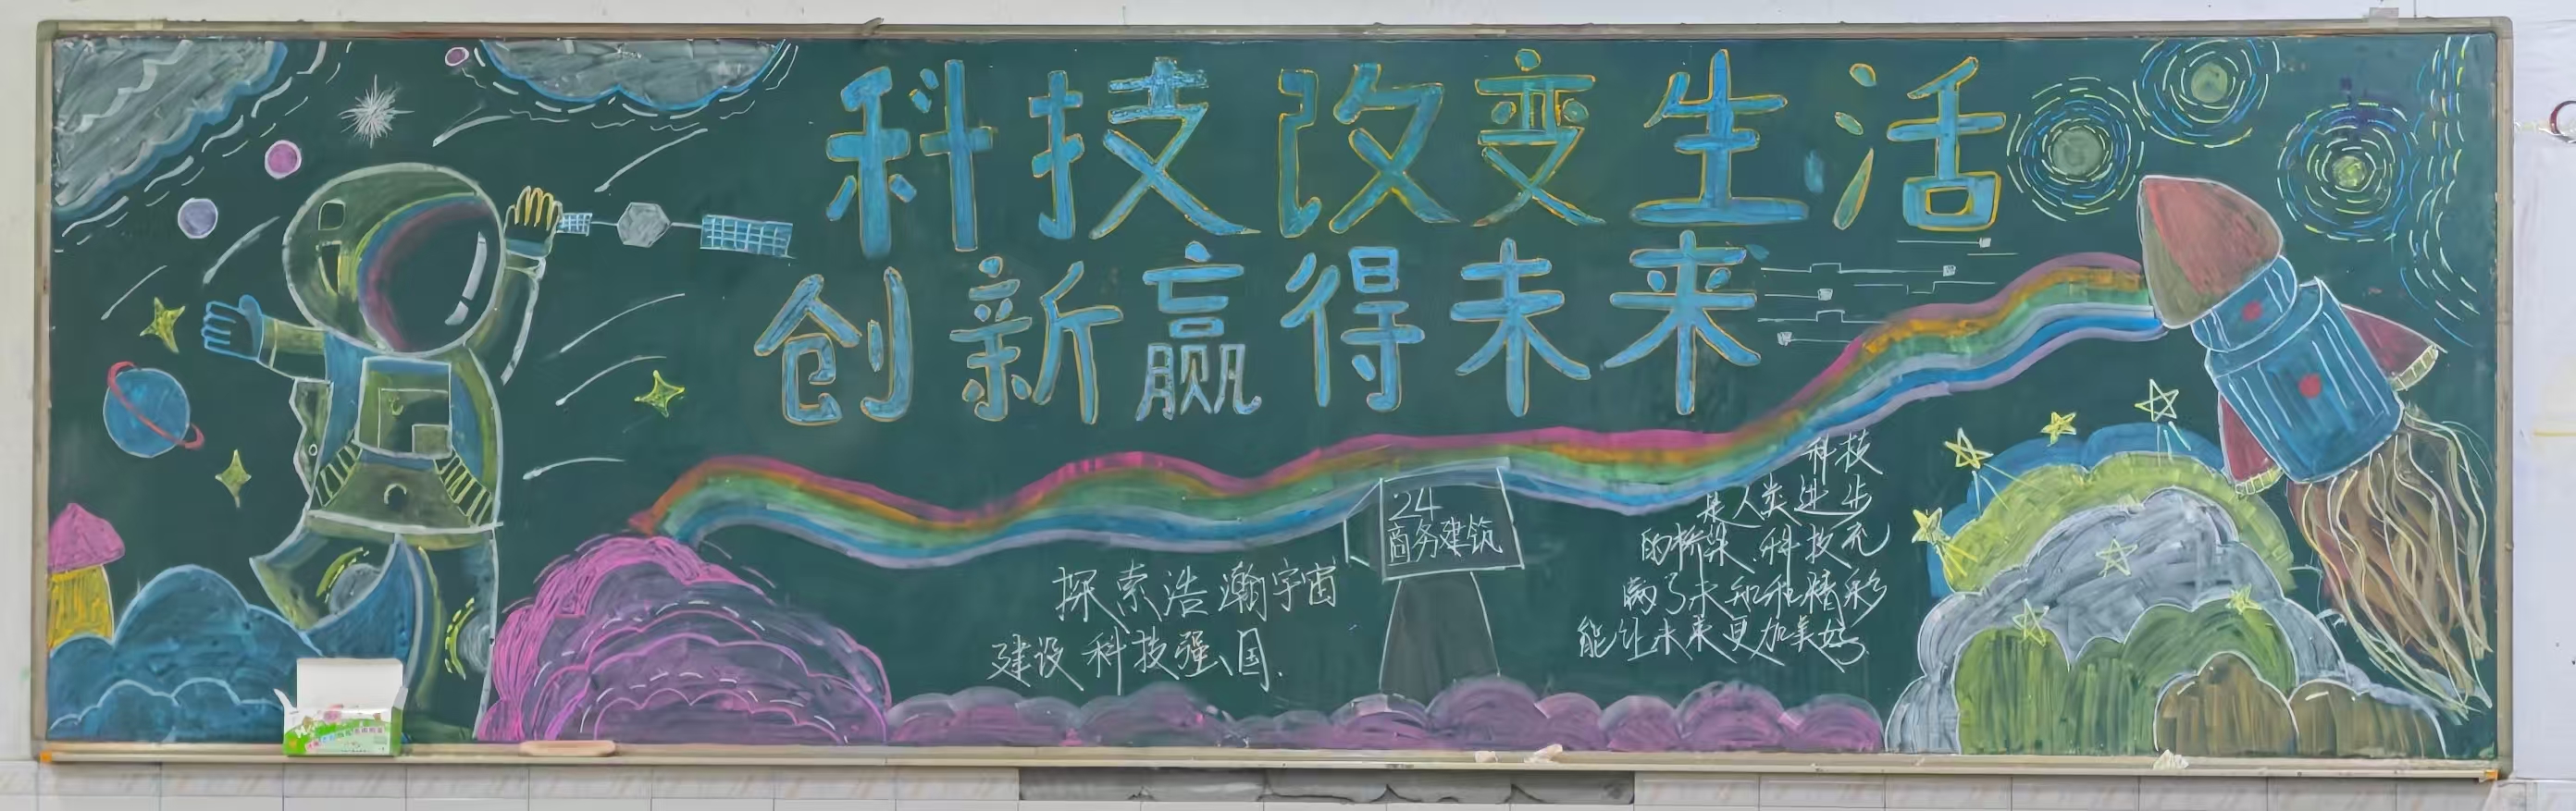 科技改变生活
创新赢得未来
探索浩瀚宇宙
建设科技强国.
24
商务建筑
科技
是人类进步
的桥梁.科技充
满了未知和精彩
能让未来更加美好